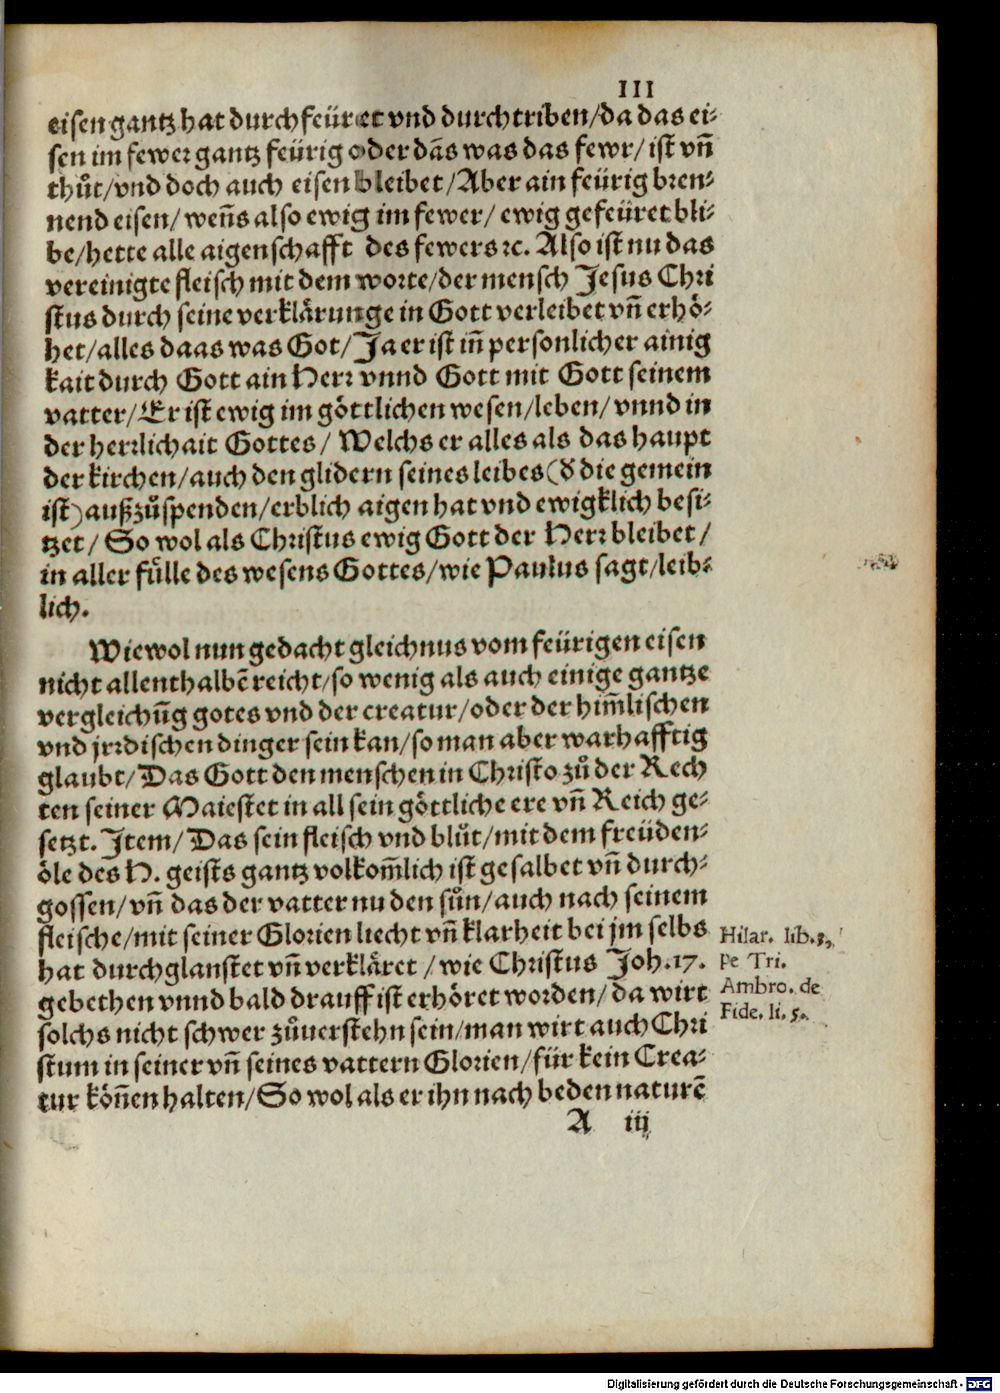 III
eisen gantz hat durchfeüret vnd durchtriben/da das ei⸗
sen im fewer gantz feürig oder dãs was das fewr/ist vñ
thůt/vnd doch auch eisen bleibet/Aber ain feürig bren⸗
nend eisen/weñs also ewig im fewer/ewig gefeüret bli⸗
be/hette alle aigenschafft des fewers ꝛc. Also ist nu das
vereinigte fleisch mit dem worte/der mensch Jesus Chri
stus durch seine verklärunge in Gott verleibet vñ erhö⸗
het/alles daas was Got/Ja er ist iñ personlicher ainig
kait durch Gott ain Herr vnnd Gott mit Gott seinem
vatter/Er ist ewig im göttlichen wesen/leben/vnnd in
der herrlichait Gottes/Welchs er alles als das haupt
der kirchen/auch den glidern seines leibes(d̕ die gemein
ist)außzůspenden/erblich aigen hat vnd ewigklich besi⸗
tzet/So wol als Christus ewig Gott der Herr bleibet/
in aller fülle des wesens Gottes/wie Paulus sagt/leib⸗
lich.
Wiewol nun gedacht gleichnus vom feürigen eisen
nicht allenthalbẽ reicht/so wenig als auch einige gantze
vergleichũg gotes vnd der creatur/oder der him̃lischen
vnd jrrdischen dinger sein kan/so man aber warhafftig
glaubt/Das Gott den menschen in Christo zů der Rech
ten seiner Maiestet in all sein göttliche ere vñ Reich ge⸗
setzt. Item/Das sein fleisch vnd blůt/mit dem freüden⸗
öle des H. geists gantz volkom̃lich ist gesalbet vñ durch⸗
gossen/vñ das der vatter nu den sůn/auch nach seinem
fleische/mit seiner Glorien liecht vñ klarheit bei jm selbs
hat durchglanstet vñ verkläret/wie Christus Joh.17.
gebethen vnnd bald drauff ist erhöret worden/da wirt
solchs nicht schwer zůuerstehn sein/man wirt auch Chri
stum in seiner vñ seines vattern Glorien/für kein Crea⸗
tur köñen halten/So wol als er ihn nach beden naturẽ
Hilar. lib.3,
Pe Tri.
Ambro. de
Fide. li. 5.
A iij
Digitalisierung gefördert durch die Deutsche Forschungsgemeinschaft - DFG